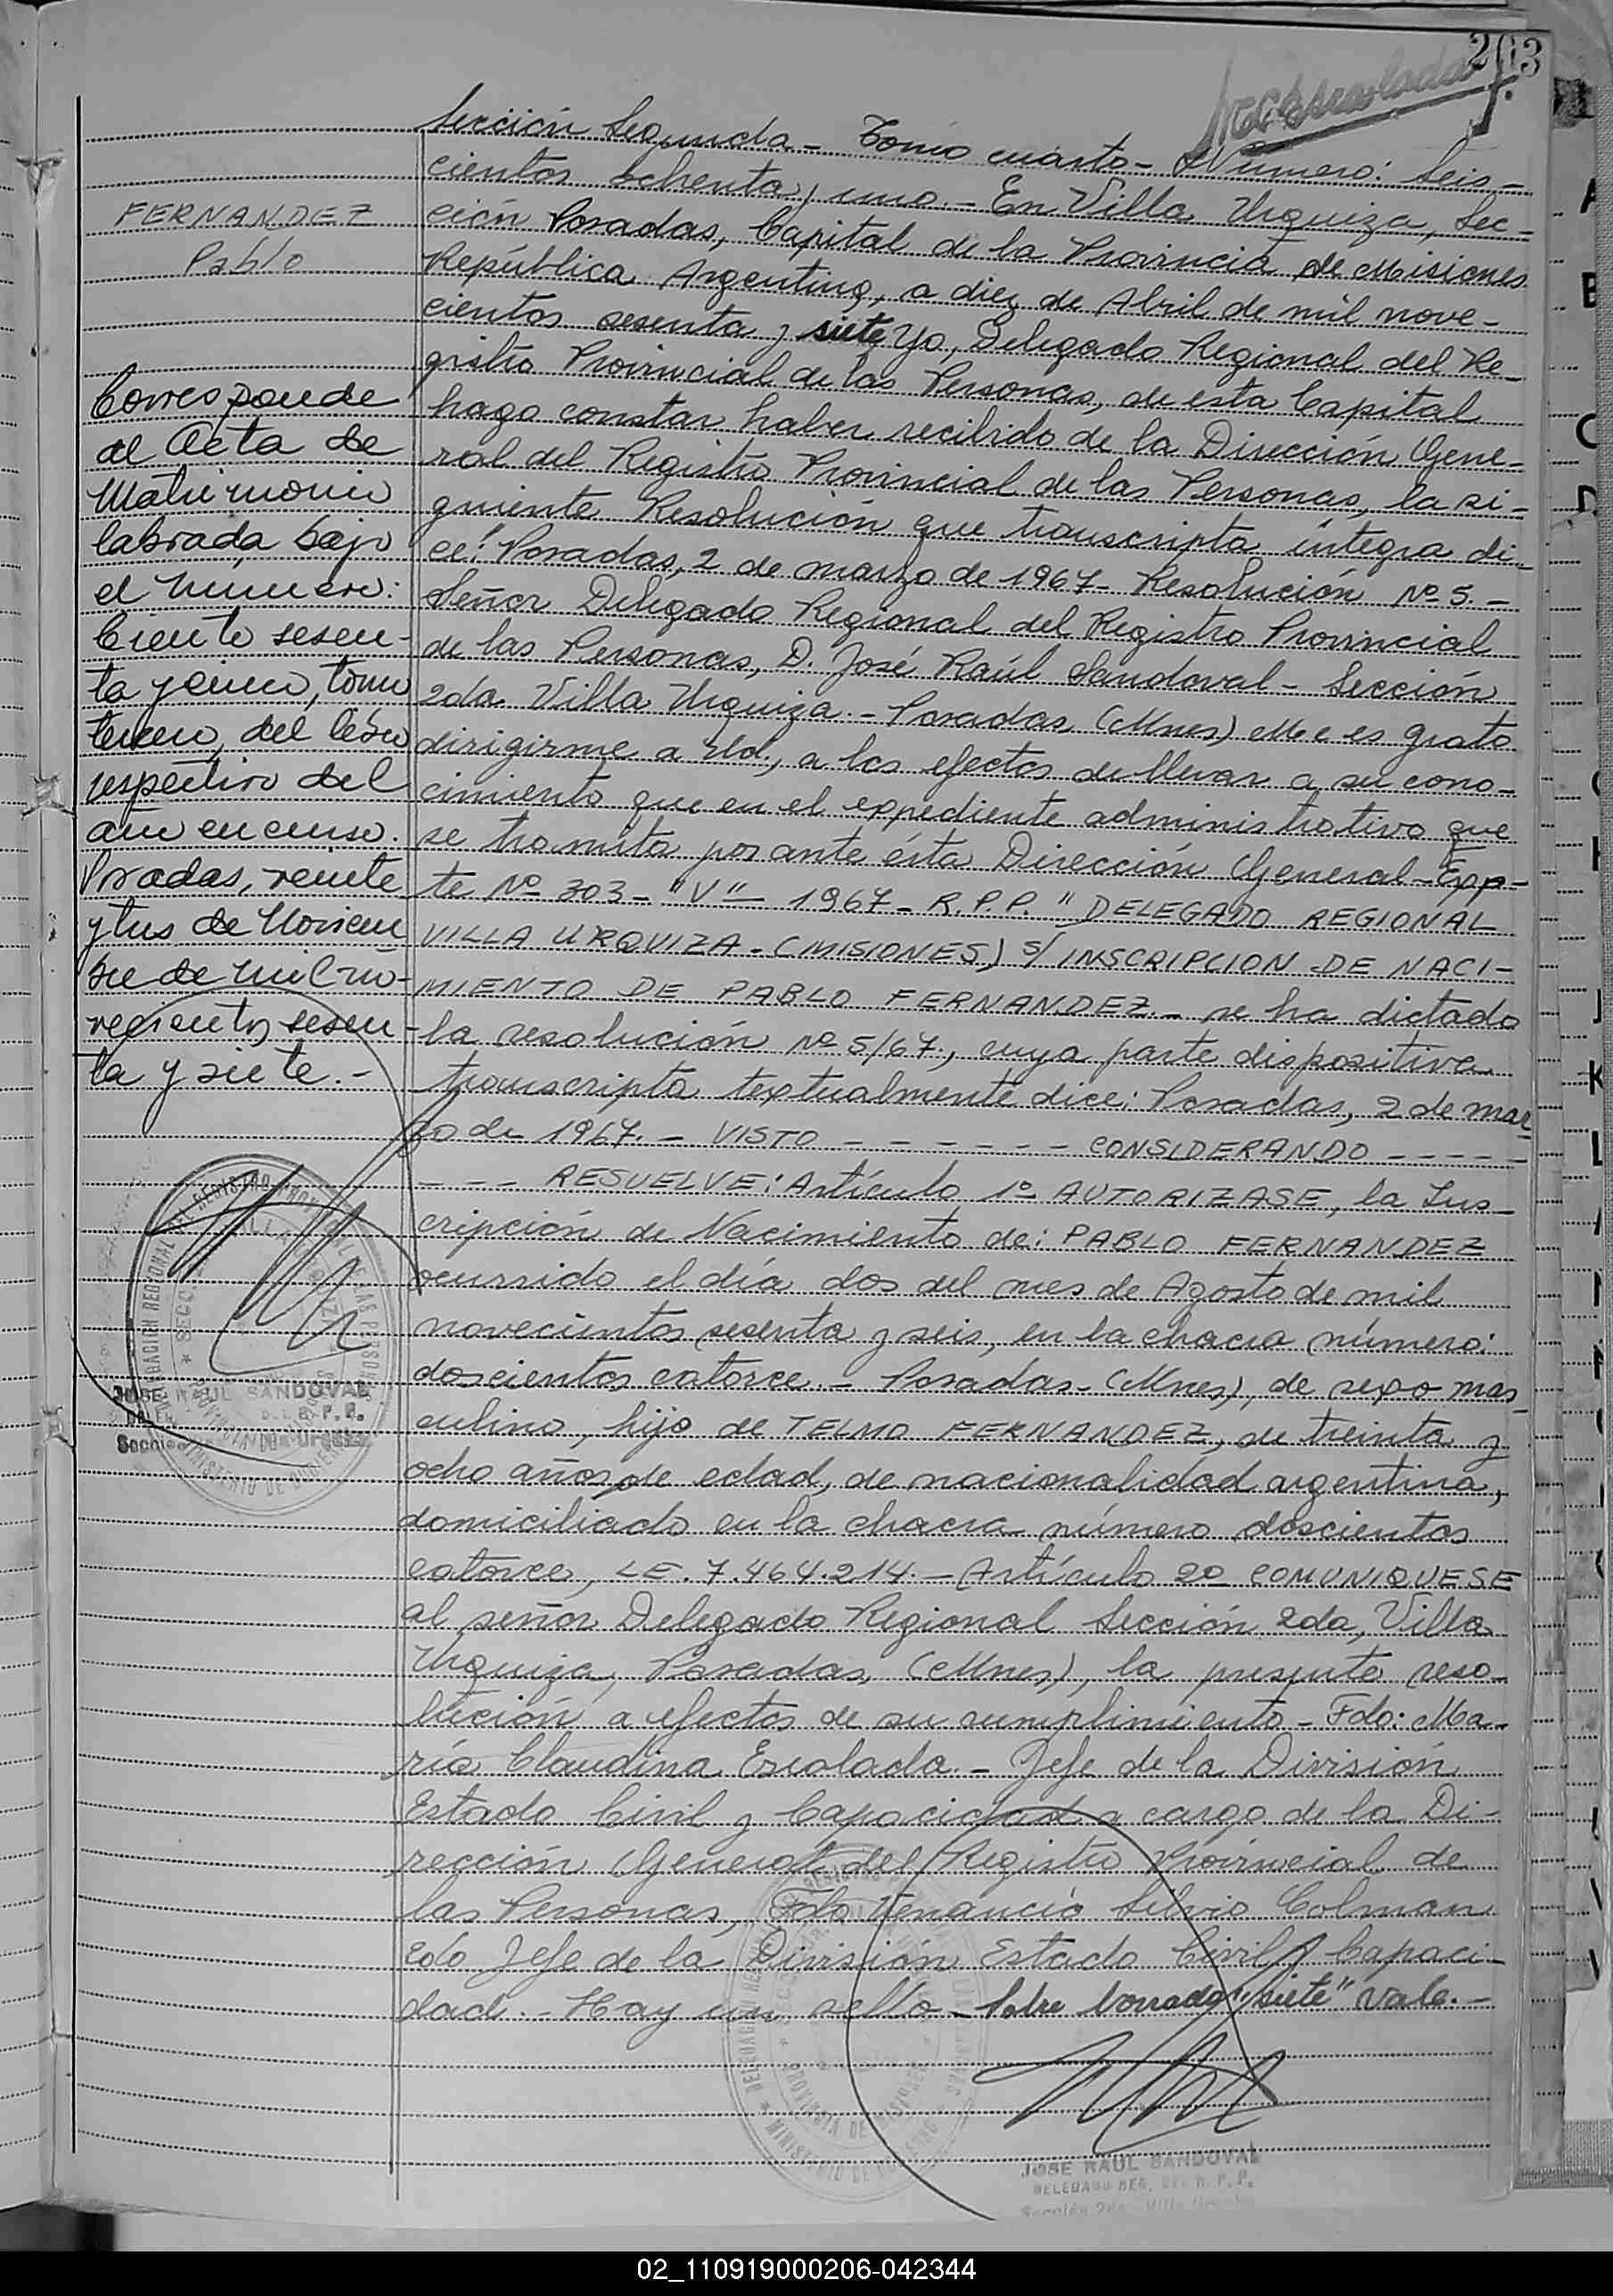 203
FERNANDEZ
Pablo
Corresponde
al Acta de
Matrimonio
labrada bajo
el número:
Ciento sesen-
ta y cinco, tomo
tercero, del libro
respectivo del
año en curso.
Posadas, veinte
y tres de Noviem
bre de mil no-
vecientos sesen-
ta y siete.-
JOSE RAUL SANDOVAL
Sección Segunda - Tomo cuarto - Número: Seis-
cientos ochenta y uno.- En Villa Urquiza, Sec-
ción Posadas, Capital de la Provincia de Misiones
República Argentina, a diez de Abril de mil nove-
cientos sesenta y siete Yo, Delegado Regional del Re-
gistro Provincial de las Personas, de esta Capital
hago constar haber recibido de la Dirección Gene-
ral del Registro Provincial de las Personas, la si-
guiente Resolución que transcripta íntegra di-
ce: "Posadas, 2 de marzo de 1967- Resolución Nº 5.-
Señor Delegado Regional del Registro Provincial
de las Personas, D. José Raúl Sandoval - Sección
2da. Villa Urquiza.- Posadas, (Mnes) Me es grato
dirigirme a Ud., a los efectos de llevar a su cono-
cimiento que en el expediente administrativo que
se tramita por ante ésta Dirección General - Exp-
te Nº 303- "V"- 1967- R.P.P. "DELEGADO REGIONAL
VILLA URQUIZA.- (MISIONES) s/ INSCRIPCION DE NACI-
MIENTO DE PABLO FERNANDEZ.- se ha dictado
la resolución Nº 5/67., cuya parte dispositiva
transcripta textualmente dice: Posadas, 2 de mar
zo de 1967.- VISTO - - - - - - - CONSIDERANDO - - - - -
- - - RESUELVE: Artículo 1º AUTORIZASE, la Ins-
cripción de Nacimiento de: PABLO FERNANDEZ
ocurrido el día dos del mes de Agosto de mil
novecientos sesenta y seis, en la chacra número:
doscientos catorce.- Posadas- (Mnes), de sexo mas
culino, hijo de TELMO FERNANDEZ, de treinta y
ocho años de edad, de nacionalidad argentina,
domiciliado en la chacra número doscientos
catorce, LE. 7.464.214.- Artículo 2º COMUNIQUESE
al señor Delegado Regional Sección 2da, Villa
Urquiza, Posadas, (Mnes), la presente reso-
lución a efectos de su cumplimiento - Fdo: Ma-
ría Claudina Escalada.- Jefe de la División
Estado Civil y Capacidad a cargo de la Di-
rección General del Registro Provincial de
las Personas, Fdo Venancio Silvio Colman
2do Jefe de la División Estado Civil y Capaci-
dad.- Hay un sello - Sobre borrado "siete" vale.-
JOSE RAUL SANDOVAL
DELEGADO REG. DEL R.P.P.
Sección 2da - Villa Urquiza
02_110919000206-042344